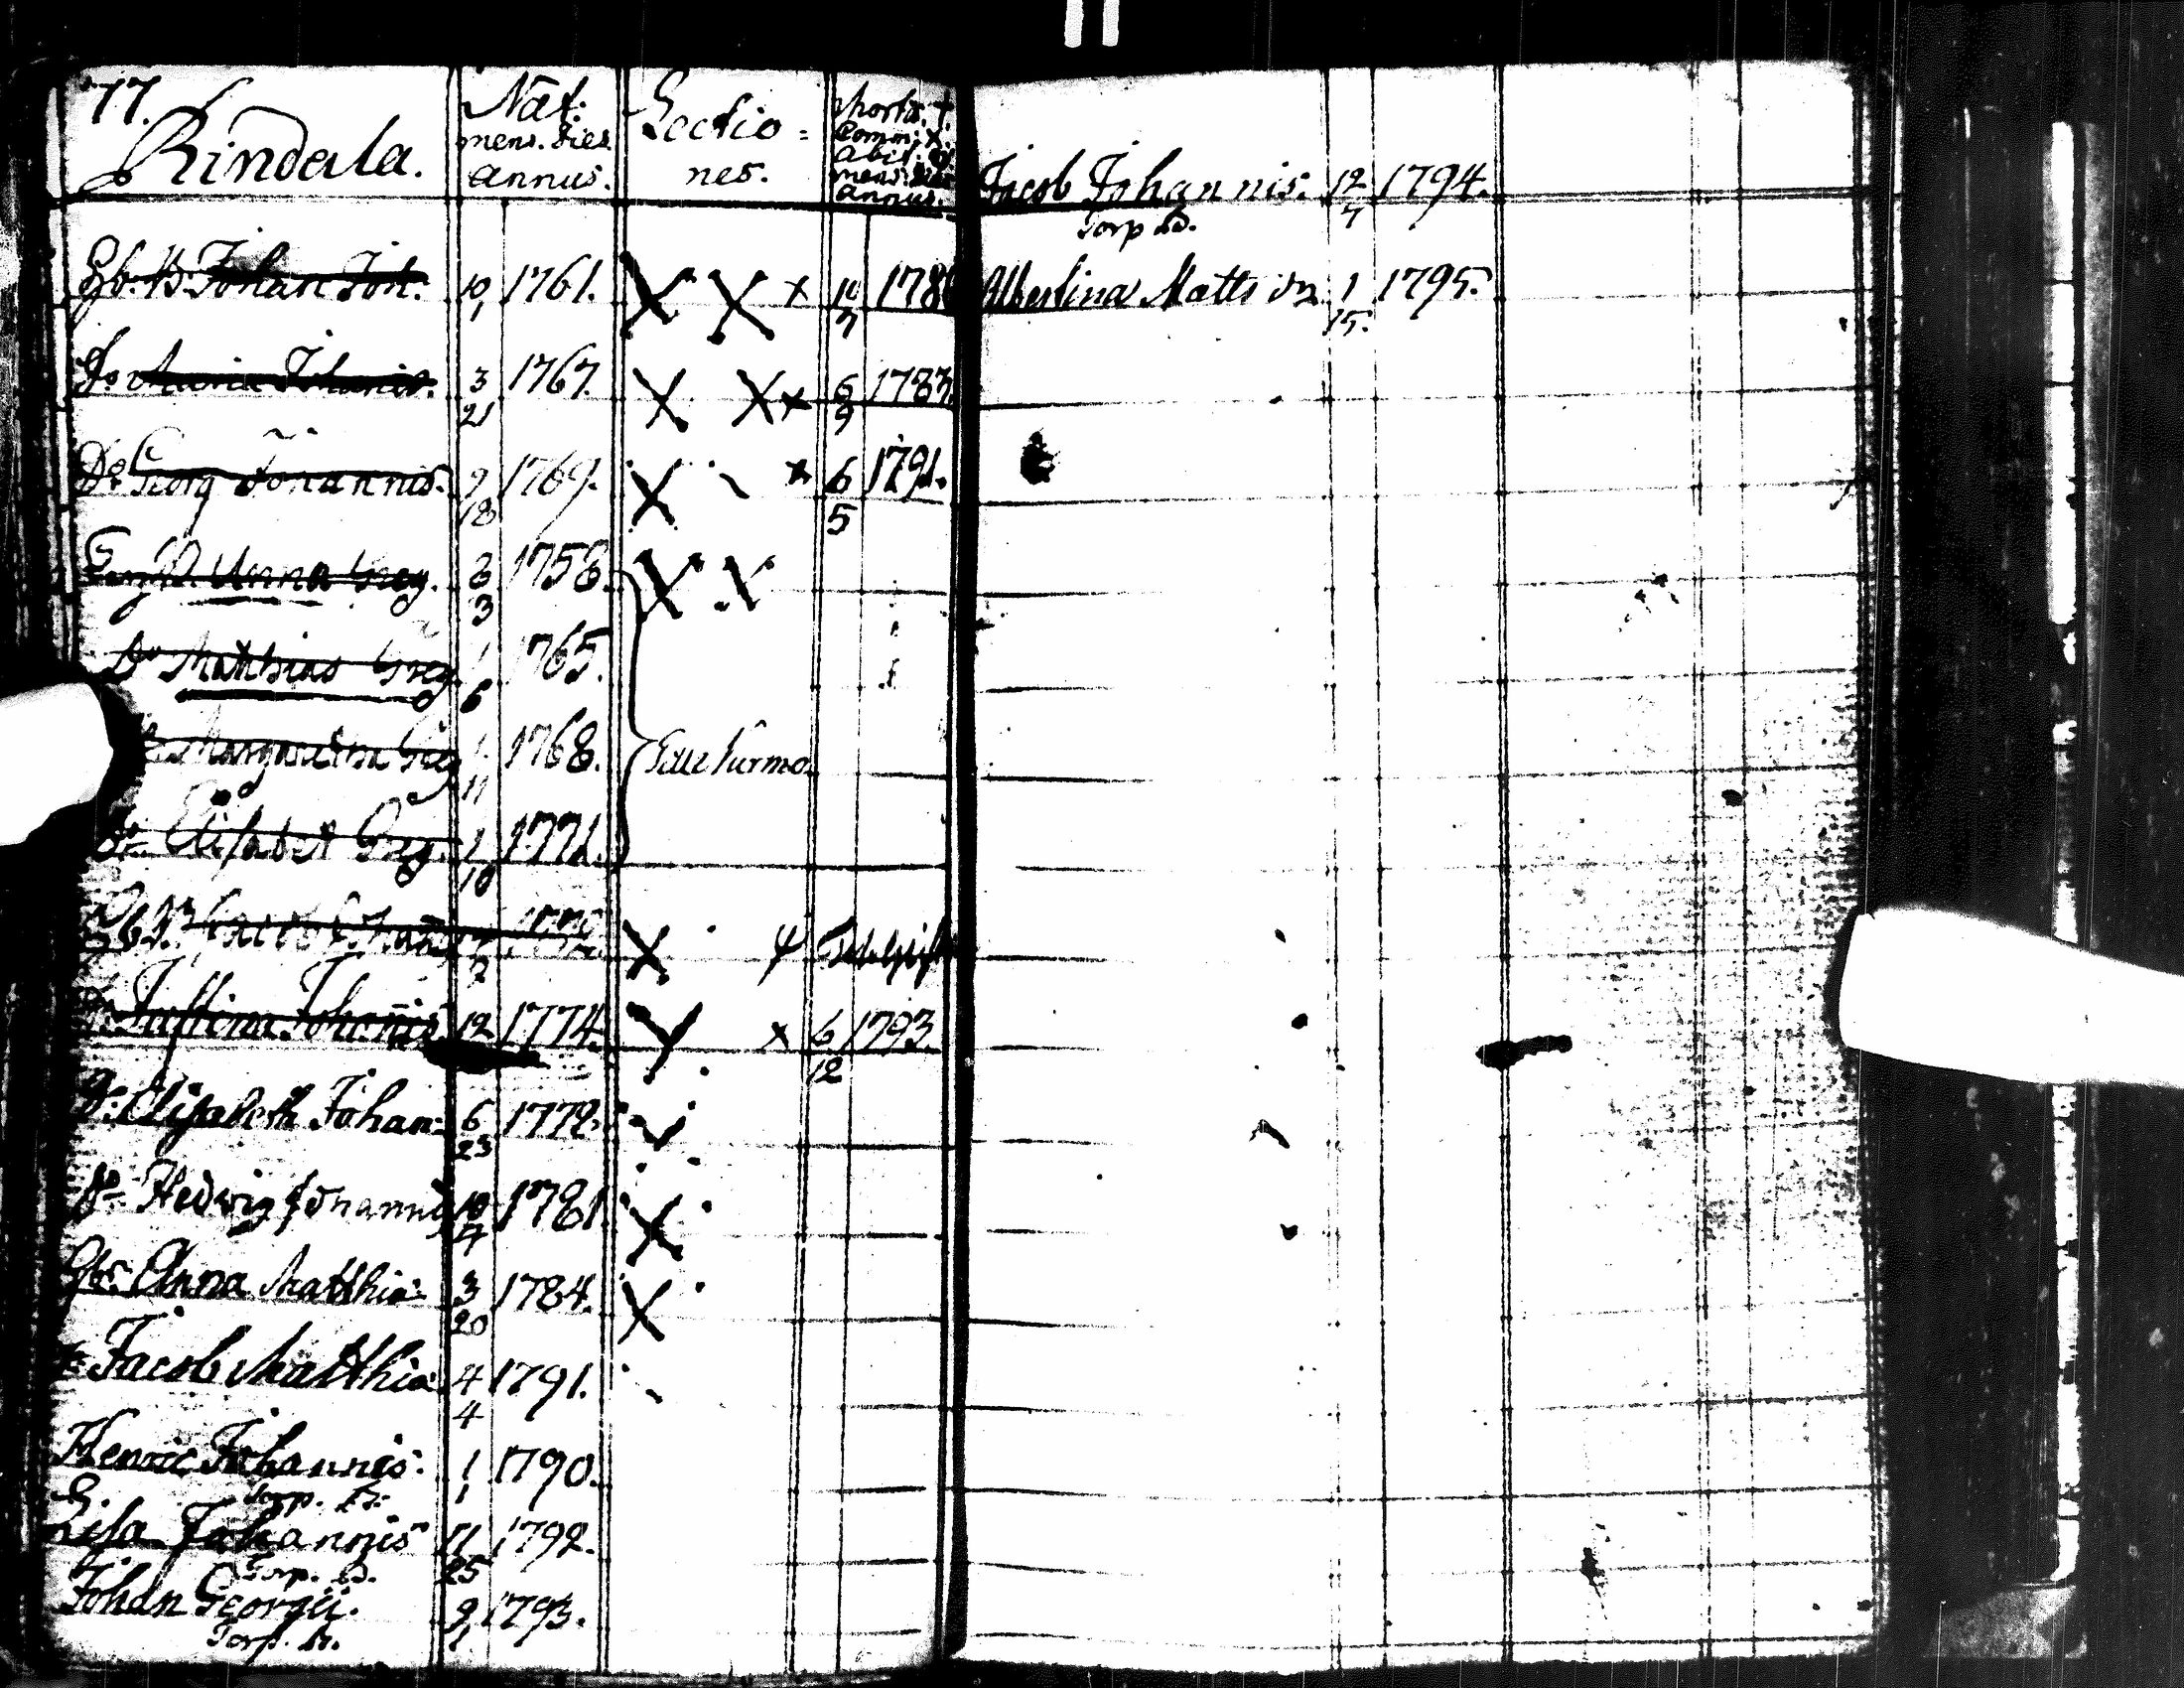 77.
Rindala.
Nat:
mens. dies.
annus.
Lectio=
nes.
Morta. †.
Comm: X.
Abit:
mens: dies
annus.
Johan Joh. 10 1 1761. X X x 10 7
Do Maria Johanis. 3 21 1767. X X x 6 9 1783.
Do Georg Johannis. 9 18 1769. X x 6 5 1791.
Anna Greg. 2 3 1758. X X
Do Matthias Greg. 1 6 1765.
Margaretha Greg 1 11 1768.
Do Elisabet Greg. 1 10 1771.
X
Do Justina Johanis 12 1774. x 6 12 1793.
Do Elisabeth Johan: 6 23 1778.
Do Hedwig Johannis 10 4 1781. X
Anna Matthiæ 3 20 1784. X
Do Jacob Matthiæ 4 4 1791.
Henric Johannis. 1 1 1790.
Torp.
Lisa Johannis 11 25 1792.
Torp. D.
Johan Georgii. 9 1 1793.
Torp.
Jacob Johannis. 12 7 1794.
Torp
Albertina Matts dr 1 15. 1795.